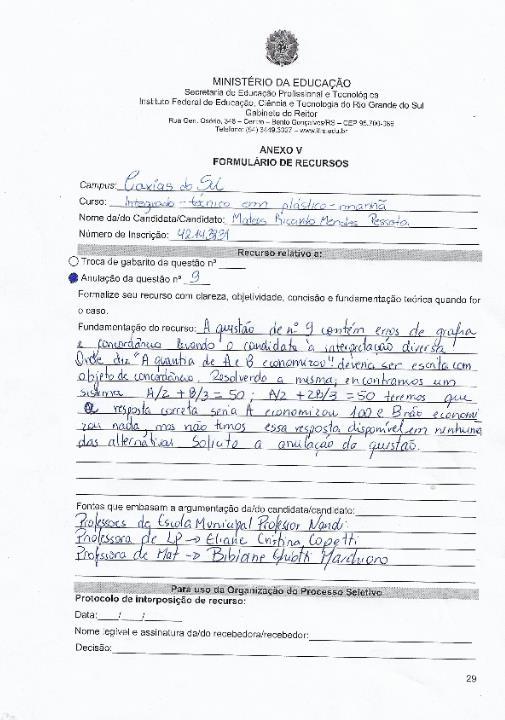 MINISTÉRIO DA EDUCAÇÃO
Secretaria de Educação Profissional e Tecnológica
Instituto Federal de Educação, Ciência e Tecnologia do Rio Grande do Sul
Gabinete do Reitor
Rua Gen. Osório, 348 – Centro – Bento Gonçalves/RS – CEP 95.700-086
Telefone: (54) 3449.3337 – www.ifrs.edu.br
ANEXO V
FORMULÁRIO DE RECURSOS
Campus: Caxias do Sul
Curso: Integrado - técnico em plástico - manhã
Nome da/do Candidata/Candidato: Mateus Ricardo Mendes
Número de Inscrição:
Recurso relativo a:
Troca de gabarito da questão nº
Anulação da questão nº 9
Formalize seu recurso com clareza, objetividade, concisão e fundamentação teórica quando for
o caso.
Fundamentação do recurso: A questão de nº 9 contém erros de grafia
e concordância levando o candidato à interpretação diversa!
Onde diz "A quantia de A e B economizou"! deveria ser escrita com
objeto de concordância. Resolvendo a mesma, encontramos um
sistema A/2 + B/3 = 50 ; A/2 + 2B/3 = 50 teremos que
a resposta correta seria A economizou 100 e B não economi
zou nada, mas não temos essa resposta disponível em nenhuma
das alternativas. Solicito a anulação da questão.
Fontes que embasam a argumentação da/do candidata/candidato:
Professores da Escola Municipal Professor Nandi
Professora de LP → Eliane Cristina Copetti
Professora de Mat → Bibiane
Para uso da Organização do Processo Seletivo
Protocolo de interposição de recurso:
Data: / /
Nome legível e assinatura da/do recebedora/recebedor:
Decisão:
29